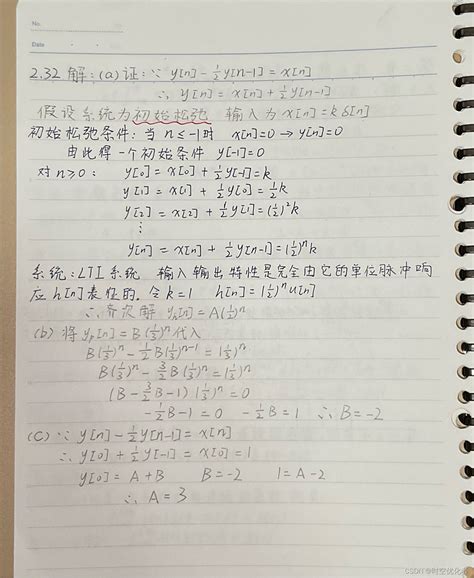 No.
Date
2.32 解:(a) 证: ∵ y[n]-½y[n-1]=x[n]
∴ y[n]=x[n]+½y[n-1]
假设系统为初始松弛 输入为x[n]=kδ[n]
初始松弛条件: 当 n≤-1时 x[n]=0→y[n]=0
由此得一个初始条件 y[-1]=0
对n≥0: y[0]=x[0]+½y[-1]=k
y[1]=x[1]+½y[0]=½k
y[2]=x[2]+½y[1]=(½)²k
⋮
y[n]=x[n]+½y[n-1]=(½)ⁿk
系统:LTI系统 输入输出特性是完全由它的单位脉冲响
应h[n]表征的. 令k=1 h[n]=(½)ⁿu[n]
∴齐次解 yₕ[n]=A(½)ⁿ
(b) 将yₚ[n]=B(⅓)ⁿ代入
B(⅓)ⁿ-½B(⅓)ⁿ⁻¹=(⅓)ⁿ
B(⅓)ⁿ-3/2B(⅓)ⁿ=(⅓)ⁿ
(B-3/2B-1)(⅓)ⁿ=0
-½B-1=0 -½B=1 ∴B=-2
(C) ∵ y[n]-½y[n-1]=x[n]
∴ y[0]+½y[-1]=x[0]=1
y[0]=A+B B=-2 1=A-2
∴A=3
CSDN @时空优化师